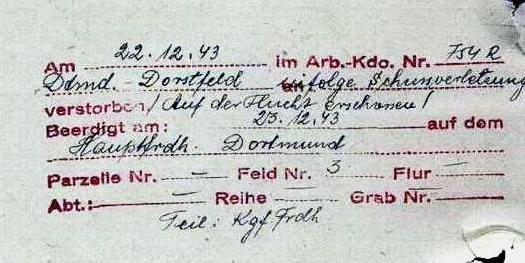 Am 22.12.43 im Arb.-Kdo. Nr. 754 R
Dtmd.-Dorstfeld infolge Schussverletzung
verstorben/Auf der Flucht erschossen!
Beerdigt am: 23.12.43 auf dem
Hauptfrdh. Dortmund
Parzelle Nr. – Feld Nr. 3 Flur –
Abt.: – Reihe – Grab Nr. –
Teil: Kgf Frdh